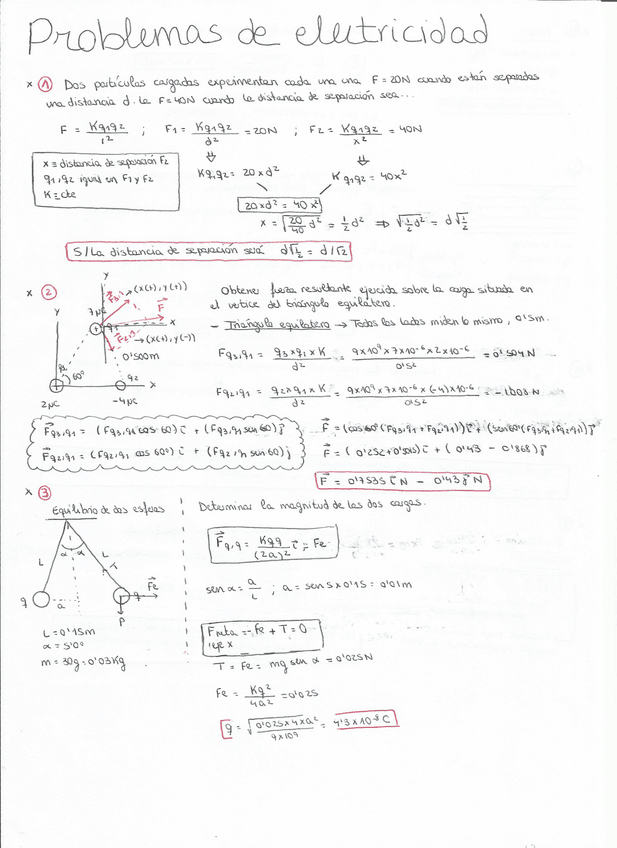 Problemas de electricidad
x ① Dos partículas cargadas experimentan cada una una F = 20N cuando están separadas
una distancia d. La F = 40N cuando la distancia de separación sea...
F = Kq1q2 / r² ; F1 = Kq1q2 / d² = 20N ; F2 = Kq1q2 / x² = 40N
x = distancia de separación F2
q1, q2 igual en F1 y F2
K = cte
Kq1q2 = 20xd²
Kq1q2 = 40x²
20xd² = 40x²
x = √(20/40 d²) = 1/2 d² ⇒ √(1/2 d²) = d√(1/2)
S/ La distancia de separación será d√(1/2) = d/√2
x ② Obtener fuerza resultante ejercida sobre la carga situada en
el vértice del triángulo equilátero.
- Triángulo equilátero → Todos los lados miden lo mismo, 0'5m.
y
(x(+), y(+))
7μC
F
q1
x
(x(+), y(-))
0'500m
y
60°
q2
x
2μC
-4μC
Fq3,q1 = q3 x q1 x K / d² = 9x10⁹ x 7x10⁻⁶ x 2x10⁻⁶ / 0'5² = 0'504 N
Fq2,q1 = q2 x q1 x K / d² = 9x10⁹ x 7x10⁻⁶ x (-4)x10⁻⁶ / 0'5² = -1'008 N
Fq3,q1 = (Fq3,q1 cos 60) i + (Fq3,q1 sen 60) j
Fq2,q1 = (Fq2,q1 cos 60°) i + (Fq2,q1 sen 60) j
F = (cos 60° (Fq3,q1 + Fq2,q1)) i + (sen 60° (Fq3,q1 + Fq2,q1)) j
F = (0'252 + 0'5015) i + (0'43 - 0'868) j
F = 0'7535 i N - 0'43 j N
x ③
Equilibrio de dos esferas
Determinar la magnitud de las dos cargas.
α
α
L
L
T
q
a
q
Fe
P
L = 0'15m
α = 5'0°
m = 30g = 0'03Kg
Fq,q = Kqq / (2a)² i = Fe
sen α = a / L ; a = sen 5 x 0'15 = 0'01m
Fneta = -Fe + T = 0
eje x
T = Fe = mg sen α = 0'025N
Fe = Kq² / 4a² = 0'025
q = √(0'025 x 4 x a² / 9x10⁹) = 4'3 x 10⁻⁸ C